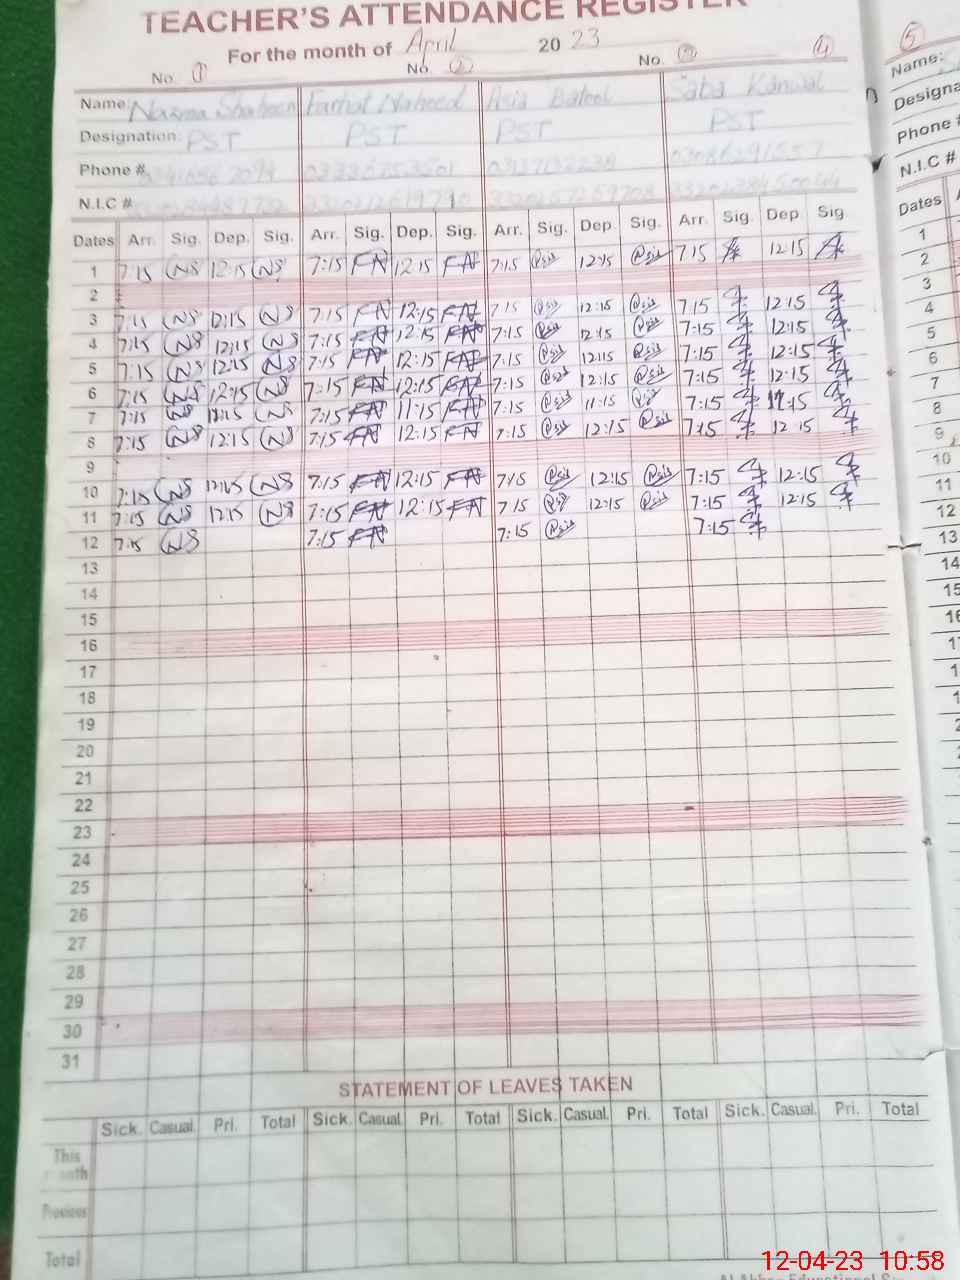 TEACHER'S ATTENDANCE REGISTER
For the month of April 20 23
No. 1 No. 2 No. 3 4 5
Name: Nazma Shaheen Farhat Naheed Asia Batool Saba Kanwal Name:
Designation: PST PST PST PST
Phone #.
N.I.C # N.I.C #
Dates Arr. Sig. Dep. Sig. Arr. Sig. Dep. Sig. Arr. Sig. Dep. Sig. Arr. Sig. Dep. Sig Dates
1 7:15 NS 12:15 NS 7:15 FN 12:15 FN 7:15 Asia 12:15 Asia 7:15 12:15 1
2 2
3 7:15 NS 12:15 NS 7:15 FN 12:15 FN 7:15 Asia 12:15 Asia 7:15 12:15 3
4 7:15 NS 12:15 NS 7:15 FN 12:15 FN 7:15 Asia 12:15 Asia 7:15 12:15 4
5 7:15 NS 12:15 NS 7:15 FN 12:15 FN 7:15 Asia 12:15 Asia 7:15 12:15 5
6 7:15 NS 12:15 NS 7:15 FN 12:15 FN 7:15 Asia 12:15 Asia 7:15 12:15 6
7 7:15 NS 11:15 NS 7:15 FN 11:15 FN 7:15 Asia 11:15 Asia 7:15 11:15 7
8 7:15 NS 12:15 NS 7:15 FN 12:15 FN 7:15 Asia 12:15 Asia 7:15 12:15 8
9 9
10 7:15 NS 12:15 NS 7:15 FN 12:15 FN 7:15 Asia 12:15 Asia 7:15 12:15 10
11 7:15 NS 12:15 NS 7:15 FN 12:15 FN 7:15 12:15 Asia 7:15 12:15 11
12 7:15 NS 7:15 FN 7:15 Asia 7:15 12
13 13
14 14
15 15
16
17
18
19
20
21
22
23
24
25
26
27
28
29
30
31
STATEMENT OF LEAVES TAKEN
Sick. Casual. Pri. Total Sick. Casual. Pri. Total Sick. Casual. Pri. Total Sick. Casual. Pri. Total
This month
Previous
Total
12-04-23 10:58